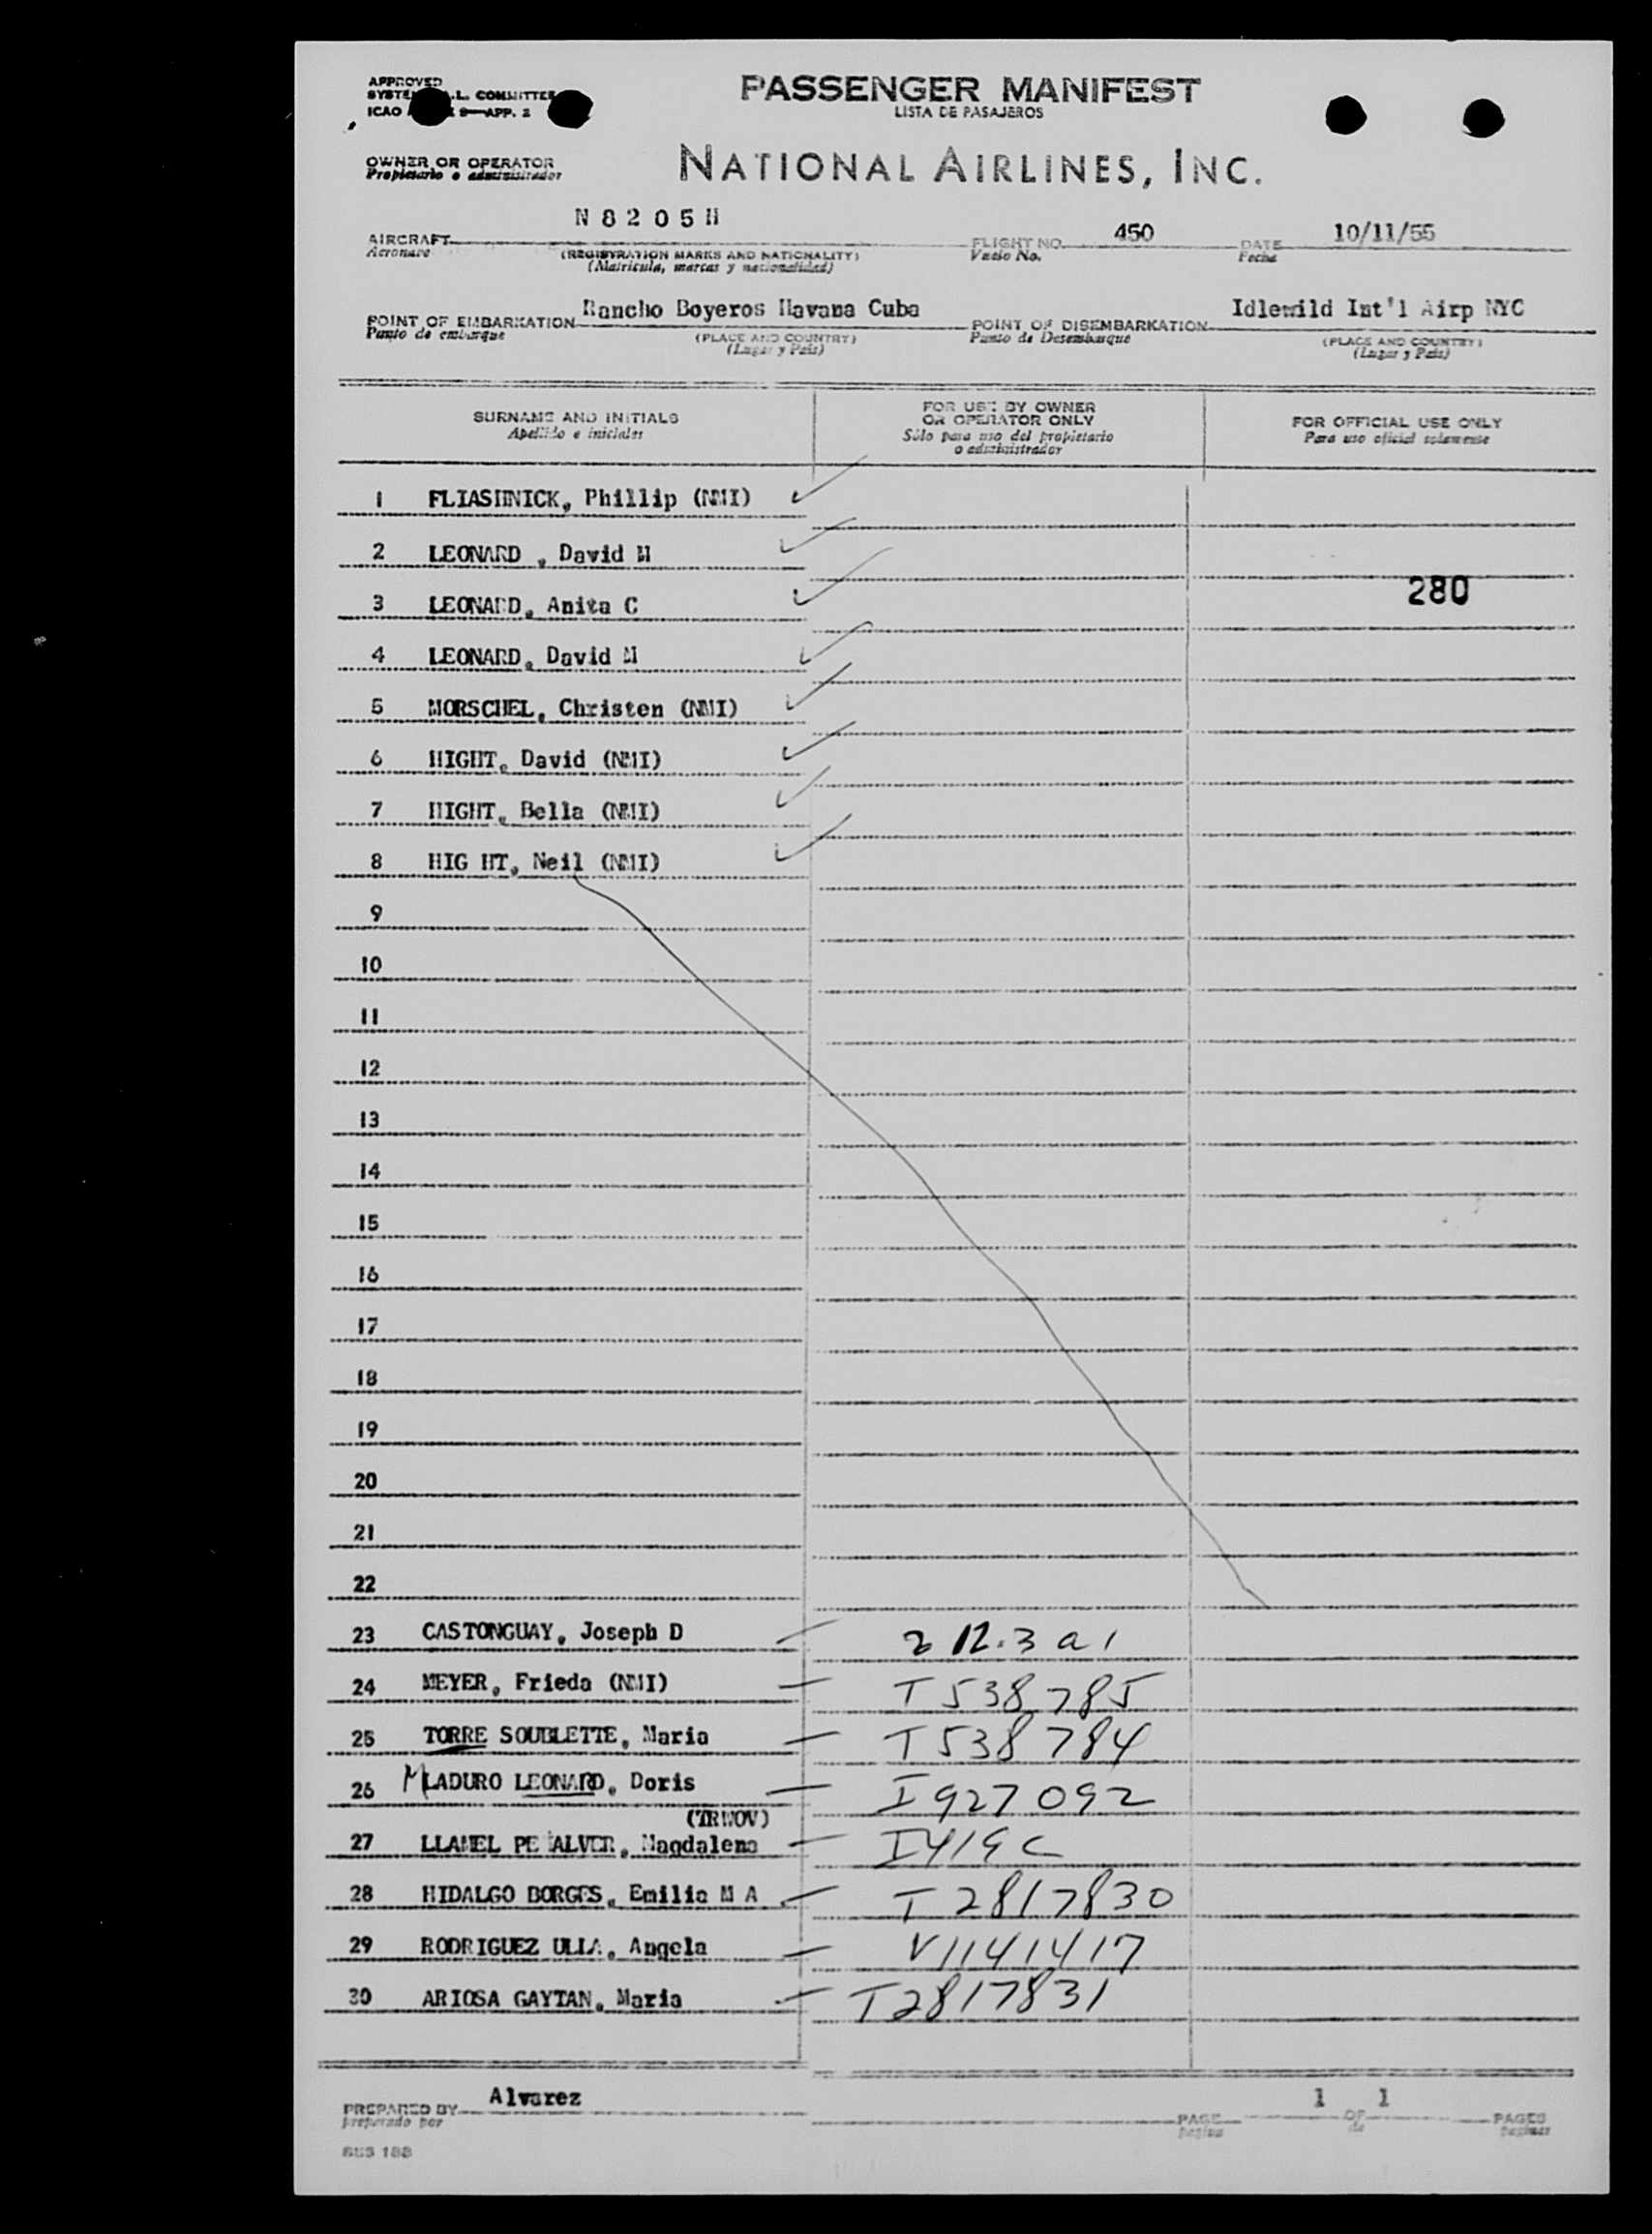 APPROVED
SYSTEM A.L. COMMITTEE
ICAO 9—APP. 2
PASSENGER MANIFEST
LISTA DE PASAJEROS
OWNER OR OPERATOR
Propietario o administrador
NATIONAL AIRLINES, INC.
AIRCRAFT N8205H FLIGHT NO. 450 DATE 10/11/55
Aeronave (REGISTRATION MARKS AND NATIONALITY) Vuelo No. Fecha
(Matricula, marcas y nacionalidad)
POINT OF EMBARKATION Rancho Boyeros Havana Cuba POINT OF DISEMBARKATION Idlewild Int'l Airp NYC
Punto de embarque (PLACE AND COUNTRY) Punto de Desembarque (PLACE AND COUNTRY)
(Lugar y Pais) (Lugar y Pais)
SURNAME AND INITIALS
Apellido e iniciales
FOR USE BY OWNER
OR OPERATOR ONLY
Sólo para uso del propietario
o administrador
FOR OFFICIAL USE ONLY
Para uso oficial solamente
1 FLIASHNICK, Phillip (NMI)
2 LEONARD , David M
3 LEONARD, Anita C 280
4 LEONARD, David M
5 MORSCHEL, Christen (NMI)
6 HIGHT, David (NMI)
7 HIGHT, Bella (NMI)
8 HIG HT, Neil (NMI)
9
10
11
12
13
14
15
16
17
18
19
20
21
22
23 CASTONGUAY, Joseph D 212.3 a 1
24 MEYER, Frieda (NMI) T538785
25 TORRE SOUBLETTE, Maria T538784
26 MLADURO LEONARD, Doris I927092
(TRWOV)
27 LLAMEL PE ALVER, Magdalena I419C
28 HIDALGO BORGES, Emilia M A T2817830
29 RODRIGUEZ ULLA, Angela V1141417
30 ARIOSA GAYTAN, Maria T2817831
PREPARED BY Alvarez PAGE 1 OF 1 PAGES
preparado por Pagina de Paginas